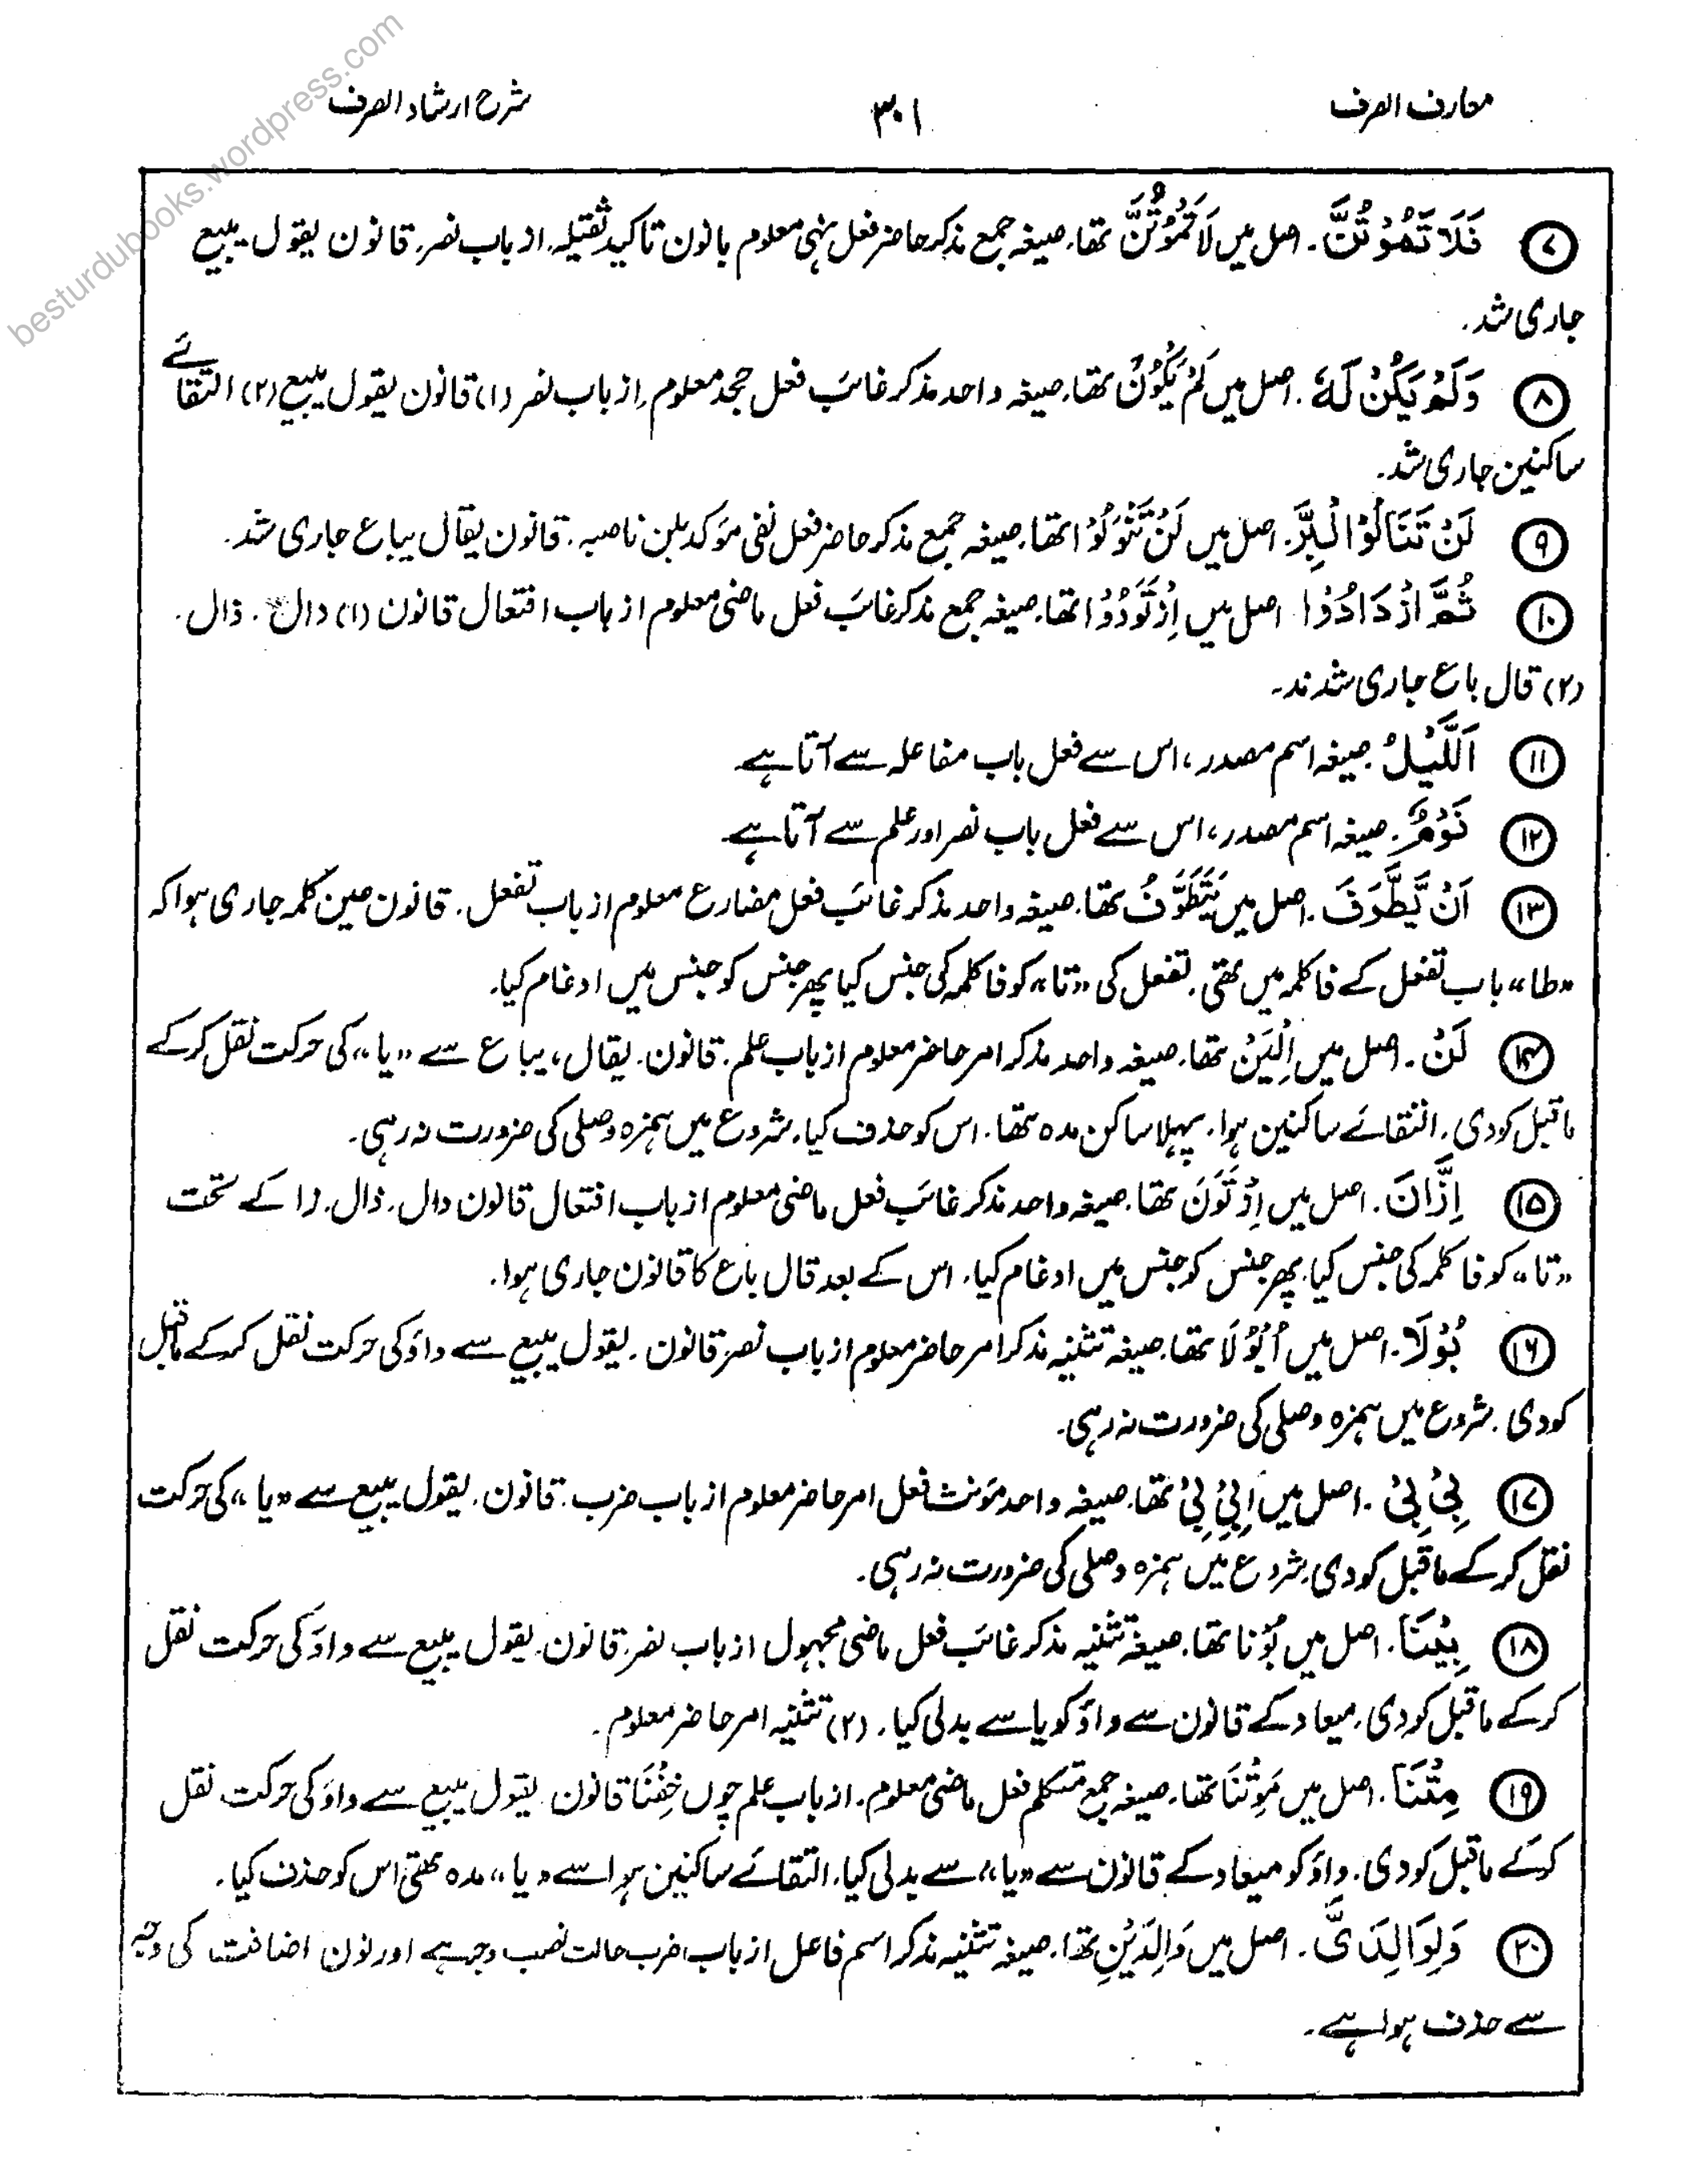 معارف الصرف ۳۰۱ شرح ارشاد الصرف
besturdubooks.wordpress.com
۷ فَلَا تَمُوْتُنَّ ۔ اصل میں لَا تَمْوُتُنَّ تھا۔ صیغہ جمع مذکر حاضر فعل نہی معلوم بانون تاکید ثقیلہ۔ از باب نصر۔ قانون یقول یبیع
جاری شد۔
۸ وَلَمْ يَكُنْ لَهٗ ۔ اصل میں لَمْ يَكْوُنْ تھا۔ صیغہ واحد مذکر غائب فعل جحد معلوم۔ از باب نصر (۱) قانون یقول یبیع (۲) التقائے
ساکنین جاری شد۔
۹ لَنْ تَنَالُوْا الْبِرَّ۔ اصل میں لَنْ تَنْوَلُوْا تھا۔ صیغہ جمع مذکر حاضر فعل نفی مؤکد بلن ناصبہ۔ قانون یقال یباع جاری شد۔
۱۰ ثُمَّ ازْدَادُوْا اصل میں اِزْتَوَدُوْا تھا۔ صیغہ جمع مذکر غائب فعل ماضی معلوم از باب افتعال قانون (۱) دال ۔ ذال ۔
(۲) قال باع جاری شدند۔
۱۱ اَللَّيْلُ ۔ صیغہ اسم مصدر، اس سے فعل باب مفاعلہ سے آتا ہے۔
۱۲ نَوْمٌ ۔ صیغہ اسم مصدر، اس سے فعل باب نصر اور علم سے آتا ہے۔
۱۳ اَنْ يَّطَّوَّفَ ۔ اصل میں يَتَطَوَّفُ تھا۔ صیغہ واحد مذکر غائب فعل مضارع معلوم از باب تفعل ۔ قانون عین کلمہ جاری ہوا کہ
«طا» باب تفعل کے فا کلمہ میں تھی۔ تفعل کی «تا» کو فا کلمہ کی جنس کیا پھر جنس کو جنس میں ادغام کیا۔
۱۴ لَنْ ۔ اصل میں اِلْيَنْ تھا۔ صیغہ واحد مذکر امر حاضر معلوم از باب علم۔ قانون۔ یقال، یباع سے «یا» کی حرکت نقل کر کے
ماقبل کو دی۔ التقائے ساکنین ہوا۔ پہلا ساکن مدہ تھا۔ اس کو حذف کیا۔ شروع میں ہمزہ وصلی کی ضرورت نہ رہی۔
۱۵ اِذَّانَ ۔ اصل میں اِذْتَوَنَ تھا۔ صیغہ واحد مذکر غائب فعل ماضی معلوم از باب افتعال قانون دال۔ ذال۔ زا کے تحت
«تا» کو فا کلمہ کی جنس کیا۔ پھر جنس کو جنس میں ادغام کیا۔ اس کے بعد قال باع کا قانون جاری ہوا۔
۱۶ بُوْلَا ۔ اصل میں اُبْوُلَا تھا۔ صیغہ تثنیہ مذکر امر حاضر معلوم از باب نصر قانون۔ یقول یبیع سے واؤ کی حرکت نقل کر کے ماقبل
کو دی۔ شروع میں ہمزہ وصلی کی ضرورت نہ رہی۔
۱۷ بِیْ بِیْ ۔ اصل میں اِبْیِبِیْ تھا۔ صیغہ واحد مؤنث فعل امر حاضر معلوم از باب ضرب۔ قانون۔ یقول یبیع سے «یا» کی حرکت
نقل کر کے ماقبل کو دی۔ شروع میں ہمزہ وصلی کی ضرورت نہ رہی۔
۱۸ بِيْنَا ۔ اصل میں بُوِنَا تھا۔ صیغہ تثنیہ مذکر غائب فعل ماضی مجہول از باب نصر۔ قانون۔ یقول یبیع سے واؤ کی حرکت نقل
کر کے ماقبل کو دی۔ میعاد کے قانون سے واؤ کو یا سے بدلی کیا۔ (۲) تثنیہ امر حاضر معلوم۔
۱۹ مِتْنَا ۔ اصل میں مَوِتْنَا تھا۔ صیغہ جمع متکلم فعل ماضی معلوم۔ از باب علم چوں خِفْنَا قانون یقول یبیع سے واؤ کی حرکت نقل
کر کے ماقبل کو دی۔ واؤ کو میعاد کے قانون سے «یا» سے بدلی کیا۔ التقائے ساکنین ہوا اسے «یا» مدہ تھی اس کو حذف کیا۔
۲۰ وَلِوَالِدَيَّ ۔ اصل میں وَالِدَيْنِ تھا۔ صیغہ تثنیہ مذکر اسم فاعل از باب ضرب حالت نصب وجر ہے اور نون اضافت کی وجہ
سے حذف ہوا ہے۔